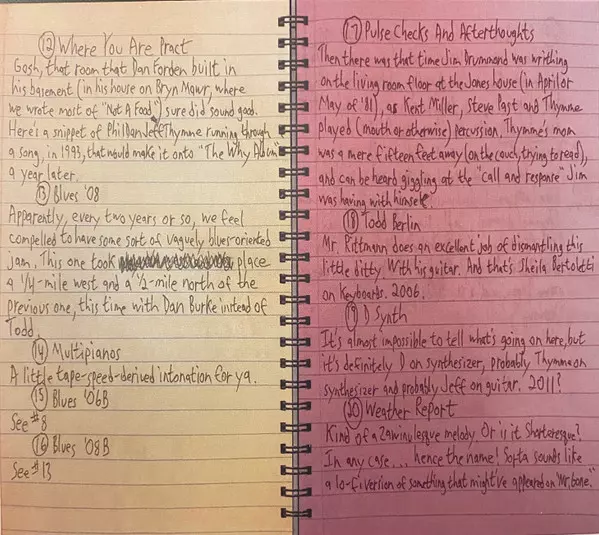 12 Where You Are Pract
Gosh, that room that Dan Forden built in
his basement (in his house on Bryn Mawr, where
we wrote most of "Not A Food") sure did sound good.
Here's a snippet of PhilDanJeffThymme running through
a song, in 1993, that would make it onto "The Why Album"
a year later.
13 Blues '08
Apparently, every two years or so, we feel
compelled to have some sort of vaguely blues-oriented
jam. This one took place
a 1/4-mile west and a 1/2-mile north of the
previous one, this time with Dan Burke instead of
Todd.
14 Multipianos
A little tape-speed-derived intonation for ya.
15 Blues '06B
See #8
16 Blues '08B
See #13
17 Pulse Checks And Afterthoughts
Then there was that time Jim Drummond was writhing
on the living room floor at the Jones house (in April or
May of '81), as Kent Miller, Steve Past and Thymme
played (mouth or otherwise) percussion. Thymme's mom
was a mere fifteen feet away (on the couch, trying to read),
and can be heard giggling at the "call and response" Jim
was having with himself.
18 Todd Berlin
Mr. Rittmann does an excellent job of dismantling this
little ditty. With his guitar. And that's Sheila Bertoletti
on Keyboards. 2006.
19 D Synth
It's almost impossible to tell what's going on here, but
it's definitely D on synthesizer, probably Thymme on
synthesizer and probably Jeff on guitar. 2011?
20 Weather Report
Kind of a Zawinulesque melody. Or is it Shorteresque?
In any case... hence the name! Sorta sounds like
a lo-fi version of something that might've appeared on "Mr. Gone."